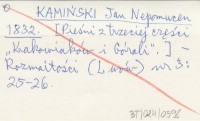 KAMIŃSKI Jan Nepomucen
1832. [Pieśni z trzeciej części
„Krakowiaków i Górali".] –
Rozmaitości (Lwów) nr 3:
25-26.